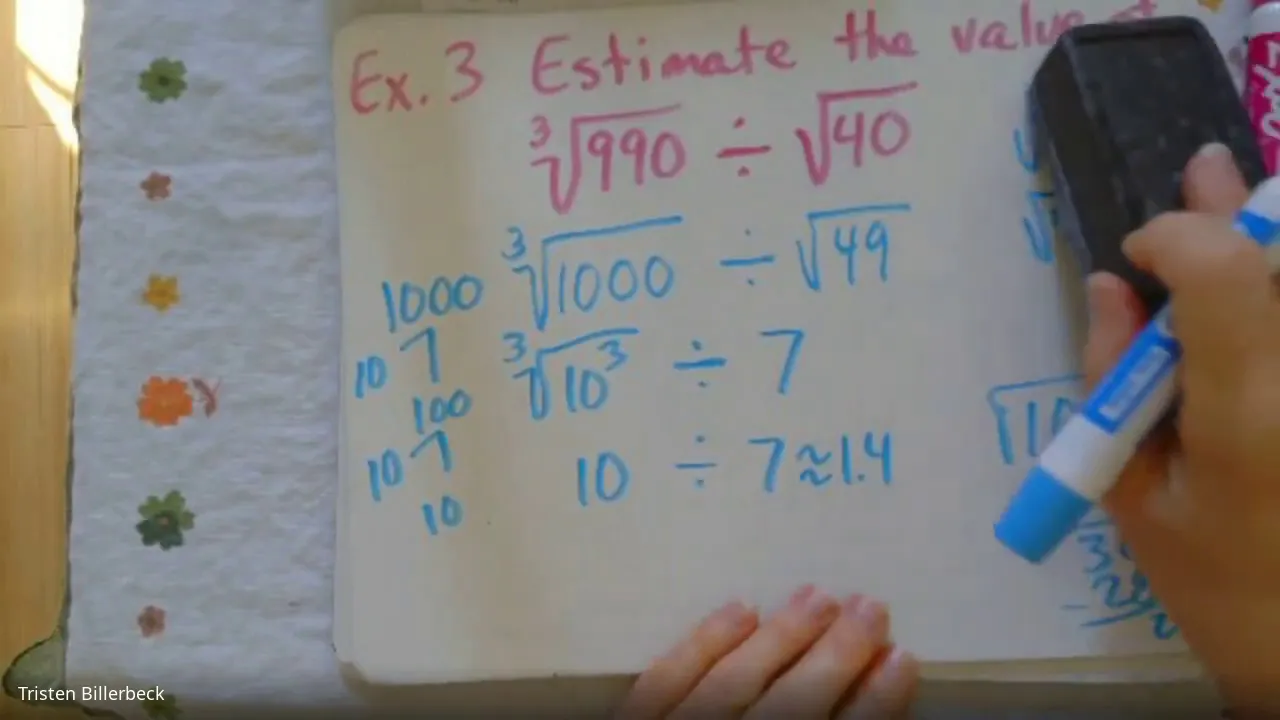 Ex. 3 Estimate the value
∛990 ÷ √40
∛1000 ÷ √49
1000
10
100
10
10
∛10³ ÷ 7
10 ÷ 7 ≈ 1.4
Tristen Billerbeck